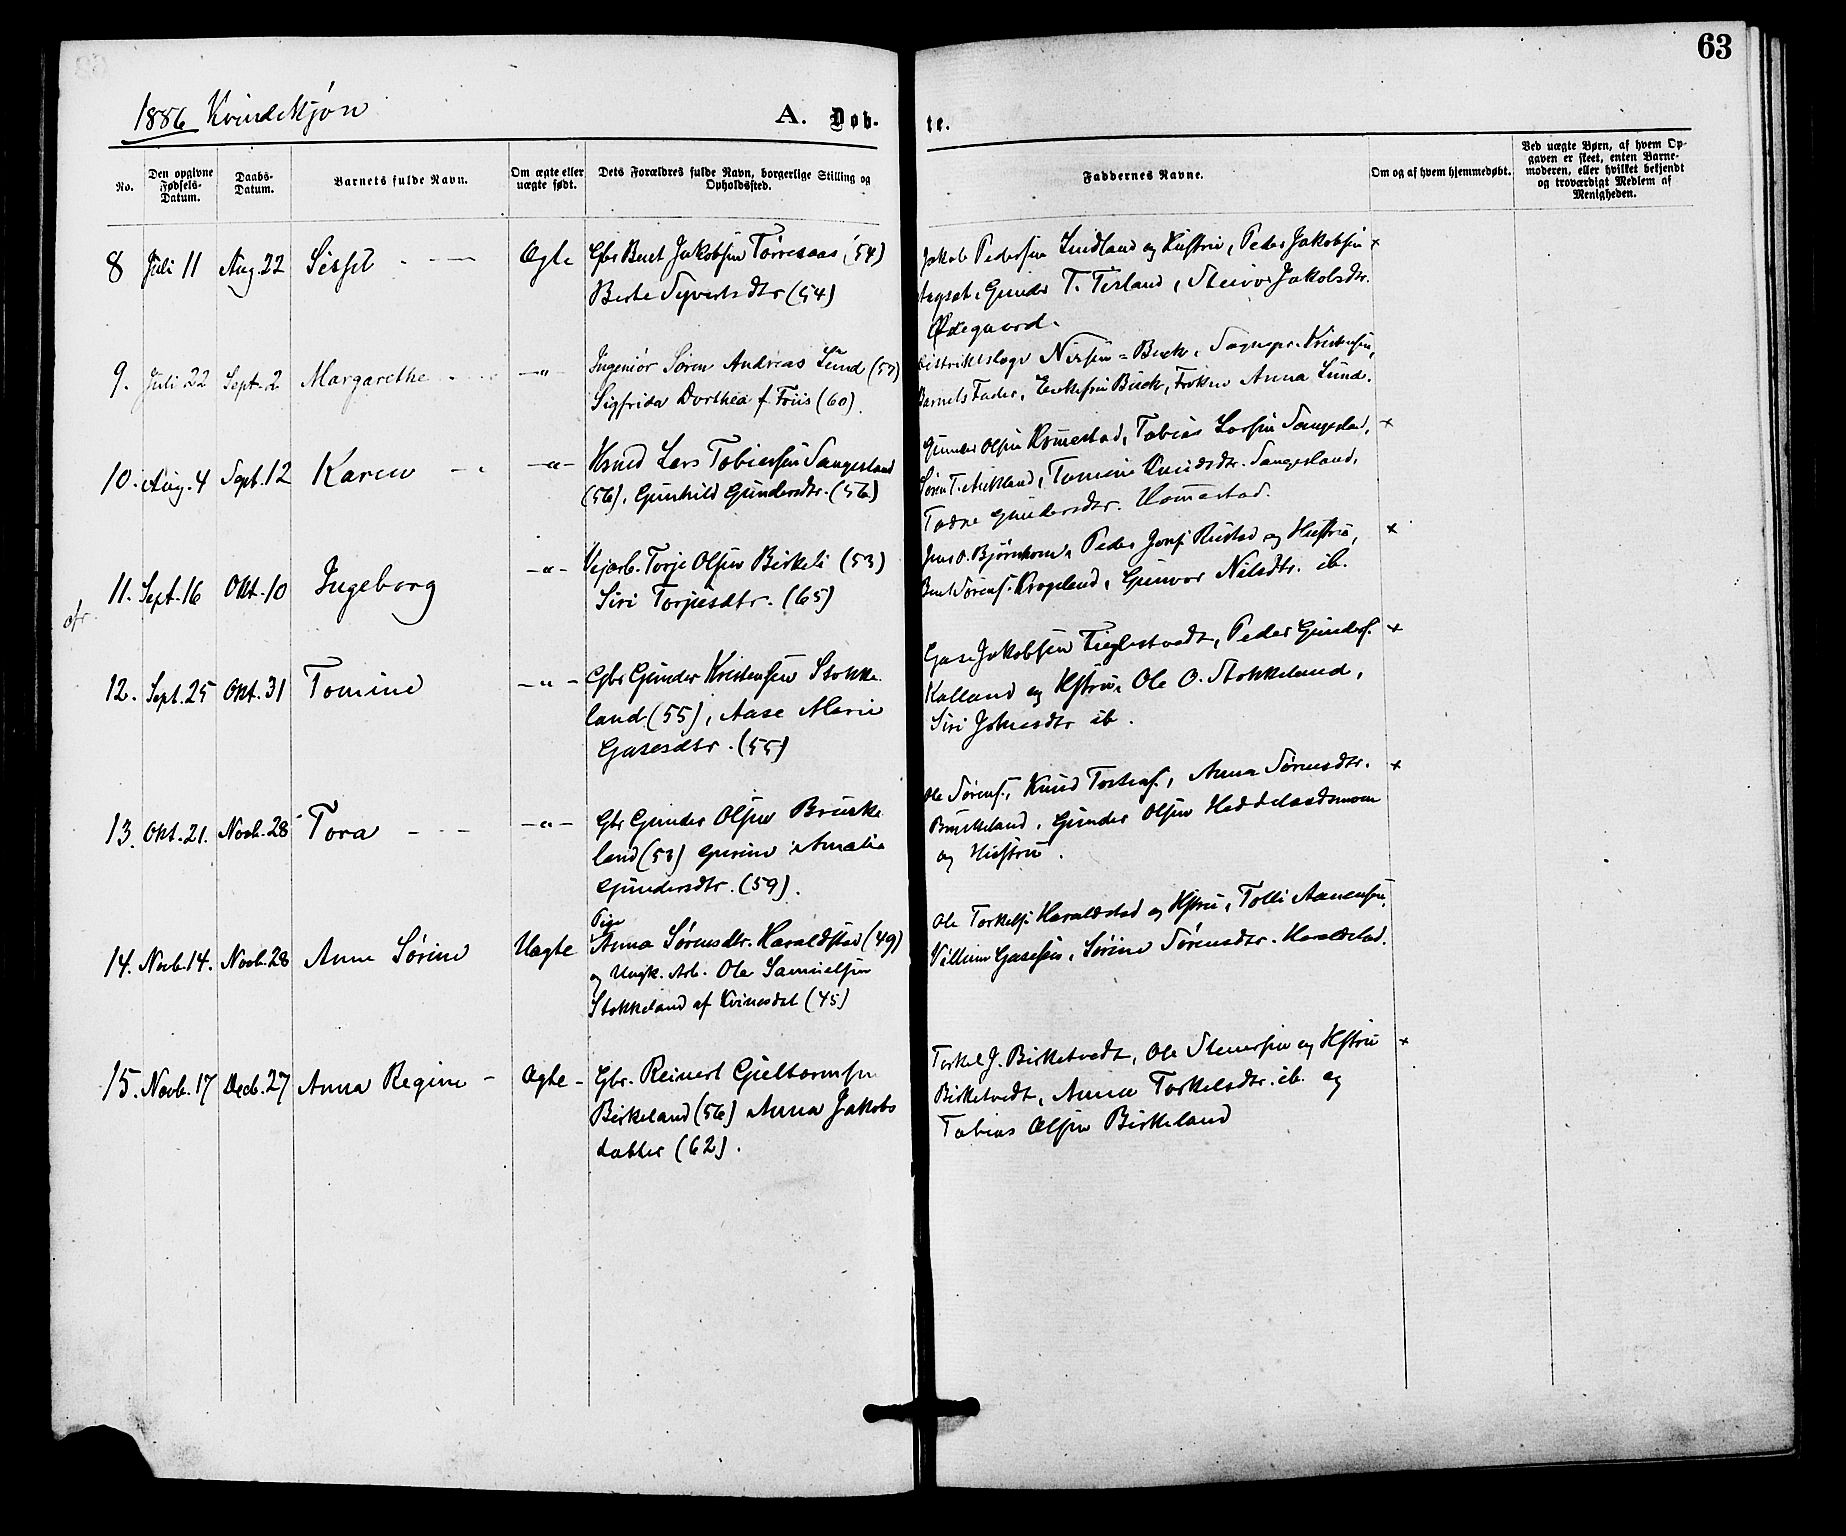 63
1886 Kvindekjøn
A. Døb-
te.
No.
Den opgivne Fødsels-Datum.
Daabs-Datum.
Barnets fulde Navn.
Om ægte eller uægte født.
Dets Forældres fulde Navn, borgerlige Stilling og Opholdssted.
Faddernes Navne.
Om og af hvem hjemmedøbt.
Ved uægte Børn, af hvem Opgaven er skeet, enten Barnemoderen, eller hvilket bekjendt og troværdigt Medlem af Menigheden.
8 Juli 11 Aug. 22 Sissel Ægte Gbr Bent Jakobsen Tørresaas (54)
Berte Syvertsdtr (54)
Jakob Pedersen Lindland og Hustru, Peder Jakobsen x
Gunder T. Tesland, Steinvor Jakobsdtr.
Ødegaard.
9. Juli 22 Sept. 2 Margarethe -"- Ingeniør Søren Andreas Lund (57)
Sigfrida Dorthea f. Friis (60).
Distriktslæge Nissen = Buck, Sognepr. Kristensen,
Barnets Fader, Enkefru Buck, Frøken Anna Lund.
10. Aug. 4 Sept. 12 Karen -"- Hsmd Lars Tobiassen Sangesland
(56), Gunhild Gundersdtr. (56)
Gunder Olsen Homestad, Tobias Larsen Sangesland, x
Søren T. Aukland, Tomine Knudsdtr. Sangesland,
Taane Gundersdtr. Homestad.
11. Sept. 16 Okt. 10 Ingeborg -"- Vejarb. Torje Olsen Birkeli (53)
Siri Torjusdtr. (65)
Jens O. Bjørnholm, Peder Jons. Rustad og Hustru, x
Bent Sørens. Krogeland, Gunvor Nilsdtr. ib.
12. Sept. 25 Okt. 31 Tomine -"- Gbr Gunder Kristensen Stokke-
land (55), Aase Marie
Gasesdtr. (55)
Gase Jakobsen Tieglestvedt, Peder Gunders. x
Kalland og Hstru, Ole O. Stokkeland,
Siri Johnsdtr ib.
13. Okt. 21. Novb. 28 Tora -"- Gbr Gunder Olsen Bruske
land (53) Gurine Amalie
Gundersdtr. (59).
Ole Sørens., Knud Torkels., Anna Sørensdtr. x
Bruskeland, Gunder Olsen Heddelandsmoen
og Hustru.
14. Novb. 14. Novb. 28 Anne Sørine Uægte Pige
Anna Sørensdtr. Haraldstad (49)
og Ungk. Arb. Ole Samuelsen
Stokkeland af Kvinesdal (45)
Ole Torkels. Haraldstad og Hstru, Tolli Aanensen,
Villum Gasesen, Sørine Sørensdtr. Haraldstad.
15. Novb. 17 Decb. 27 Anna Regine - Ægte - Gbr. Reinert Gieltormsen
Birkeland (56) Anna Jakobs
datter (62).
Torkel J. Birketvedt, Ole Stenersen og Hstru x
Birketvedt, Anna Torkelsdtr. ib. og
Tobias Olsen Birkeland